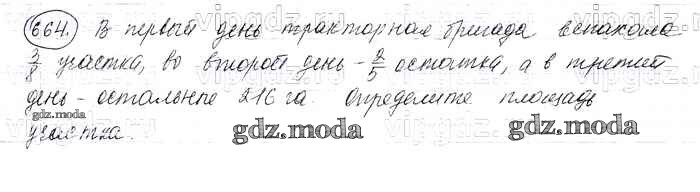 664. В первый день тракторная бригада вспахала
3/8 участка, во второй день - 2/5 остатка, а в третий
день - остальные 216 га. Определите площадь
участка.
gdz.moda gdz.moda gdz.moda